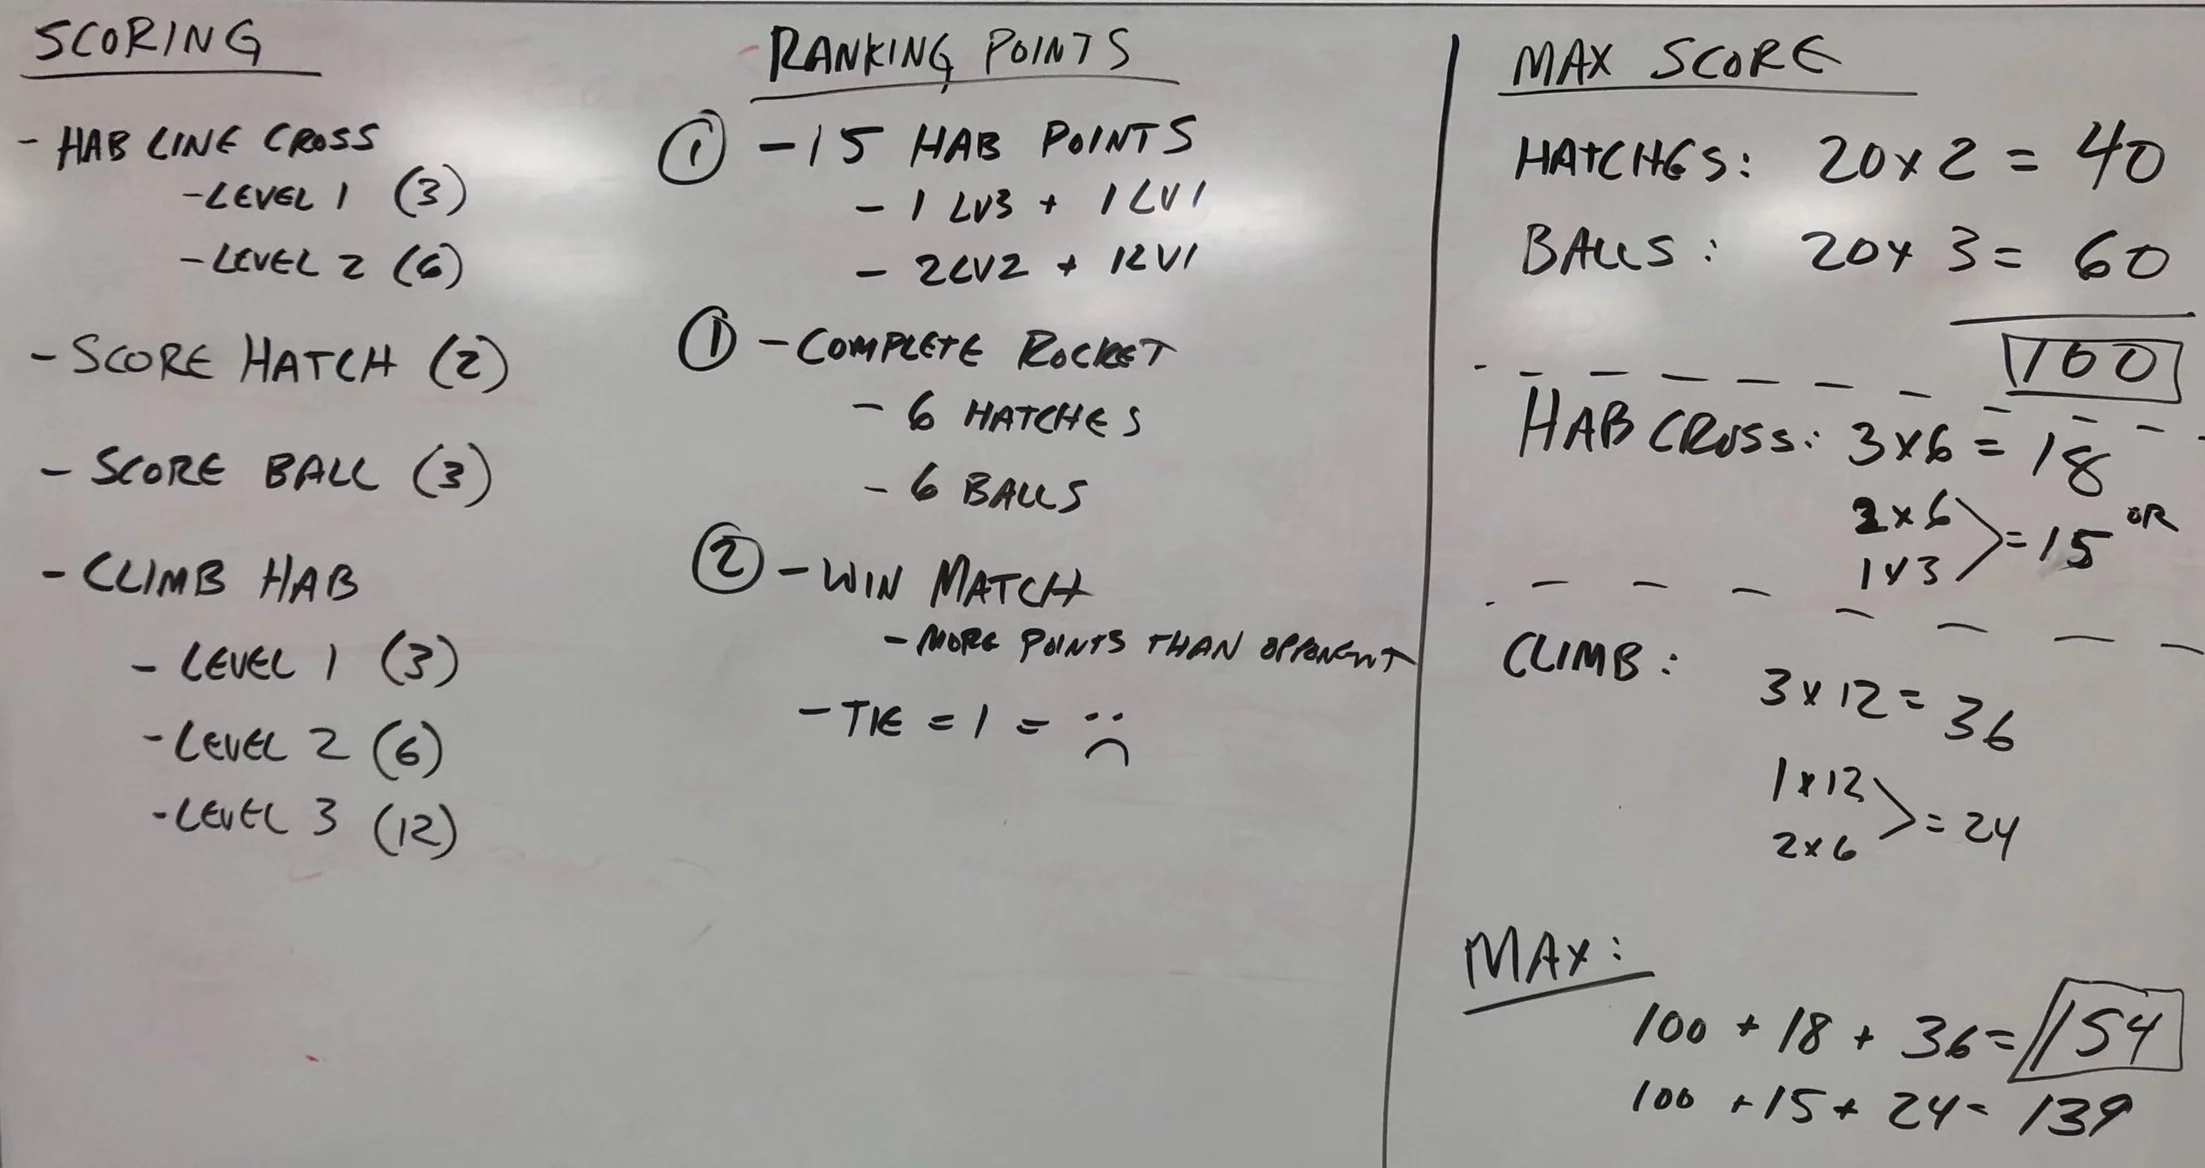 SCORING
- HAB LINE CROSS
- LEVEL 1 (3)
- LEVEL 2 (6)
- SCORE HATCH (2)
- SCORE BALL (3)
- CLIMB HAB
- LEVEL 1 (3)
- LEVEL 2 (6)
- LEVEL 3 (12)
RANKING POINTS
① - 15 HAB POINTS
- 1 LV3 + 1 LV1
- 2LV2 + 1LV1
① - COMPLETE ROCKET
- 6 HATCHES
- 6 BALLS
② - WIN MATCH
- MORE POINTS THAN OPPONENT
- TIE = 1 = :(
MAX SCORE
HATCHES: 20 x 2 = 40
BALLS: 20 x 3 = 60
100
HAB CROSS: 3x6 = 18
OR
2 x 6
1 x 3
= 15
CLIMB:
3 x 12 = 36
1 x 12
2 x 6
= 24
MAX:
100 + 18 + 36 = 154
100 + 15 + 24 = 139